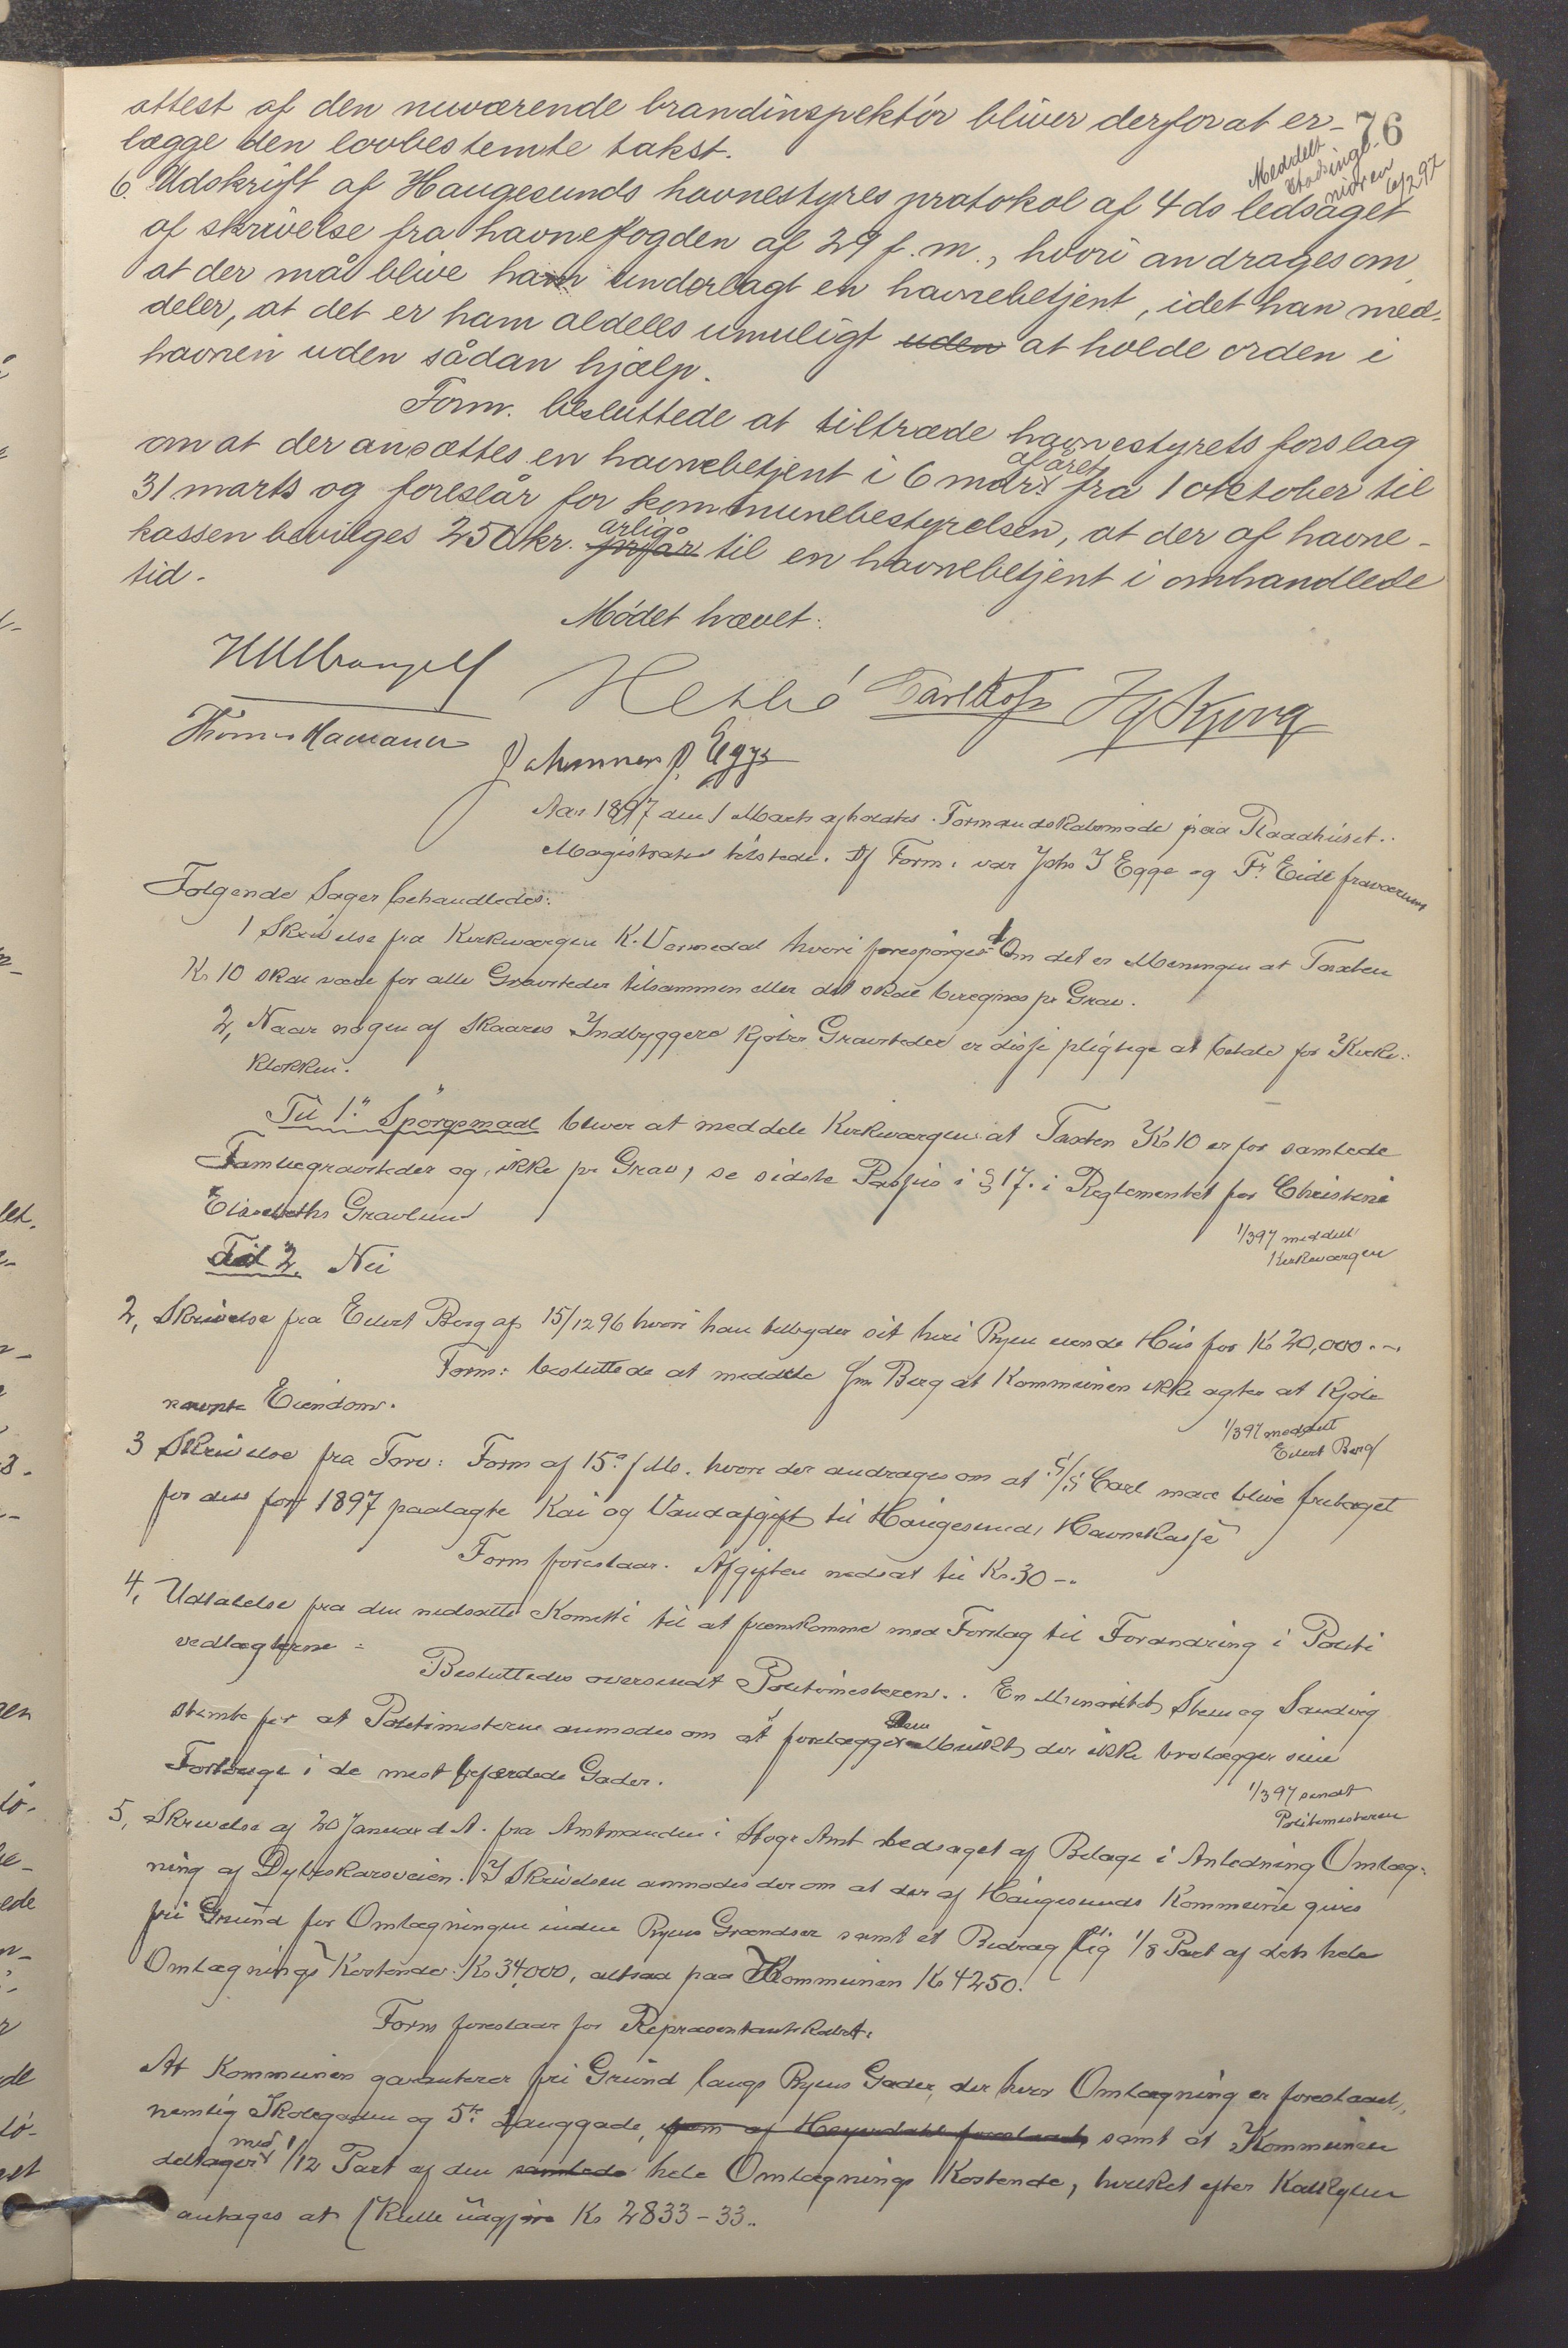 76
attest af den nuværende brandinspektör bliver derfor at er-
lægge den lovbestemte takst.
Meddelt
stadsinge-
niören
6/2 97
6. Udskrift af Haugesunds havnestyres protokol af 4 ds ledsaget
af skrivelse fra havnefogden af 29 f. m., hvori andrages om
at der må blive ham underlagt en havnebetjent, idet han med-
deler, at det er ham aldeles umuligt uden at holde orden i
havnen uden sådan hjælp.
Form. besluttede at tiltræde havnestyrets forslag
om at der ansættes en havnebetjent i 6 mdr. af året fra 1 oktober til
31 marts og foreslår for kommunebestyrelsen, at der af havne-
kassen bevilges 250 kr. pr år årlig til en havnebetjent i omhandlede
tid.
Mödet hævet.
Aar 1897 den 1 Marts afholdtes Formandskabsmöde paa Raadhuset.
Magistraten tilstede. Af Form. var Johs J Egge og Fr. Eide fraværende
Fölgende Sager behandledes:
1 Skrivelse fra Kirkeværgen K. Vormedal hvori forespörges 1, Om det er Meningen at Taxten
Kr 10 skal være for alle Gravsteder tilsammen eller det skal beregnes pr Grav.
2, Naar nogen af Skaares Indbyggere kjöber Gravsteder er disse pligtige at betale for Kirke-
klokken.
Til 1" Spörgsmaal bliver at meddele Kirkeværgen at Taxten Kr 10 er for samlede
Familiegravsteder og ikke pr Grav, se sidste Passus i § 17. i Reglementet for Christine
Elisabeths Gravlund
1/3 97 meddelt
Kirkeværgen
Til 2. Nei
2, Skrivelse fra Eilert Berg af 15/12 96 hvori han tilbyder sit her i Byen eiende Hus for Kr 20,000.-
Form: besluttede at meddele Hr Berg at Kommunen ikke agter at kjöbe
nævnte Eiendom.
1/3 97 meddelt
Eilert Berg
3 Skrivelse fra Torv: Form af 15de f. M. hvori der andrages om at S/S Carl maa blive fritaget
for den for 1897 paalagte Kai og Vandafgift til Haugesunds Havnekasse
Form foreslaar Afgiften nedsat til Kr. 30 -.
4, Udtalelse fra den nedsatte Komitti til at fremkomme med Forslag til Forandring i Politi
vedtægterne =
Besluttedes oversendt Politimesteren. En Minoritet, Steen og Sandvig
stemte for at Politimesteren anmodes om at forelægge Dem Mulkt, der ikke brolægger sine
Fortouge i de mest befærdede Gader.
1/3 97 sendt
Politimesteren
5, Skrivelse af 20 Januar d A. fra Amtmanden i Stvgr Amt ledsaget af Bilage i Anledning Omlæg-
ning af Dybeskarsveien. I Skrivelsen anmodes der om at der af Haugesunds Kommune gives
fri Grund for Omlægningen inden Byens Grændser samt et Bidrag lig 1/8 Part af dets hele
Omlægnings Kostende Kr 34,000, altsaa paa Kommunen Kr 4250.
Form foreslaar for Repræsentantskabet.
At Kommunen garanterer fri Grund langs Byens Gader, der hvor Omlægning er foreslaaet,
nemlig Skolegaden og 5te Langgade, som af Heyerdahl foreslaaet, samt at Kommunen
deltager med 1/12 Part af den samlede hele Omlægnings Kostende, hvilket efter Kalkylen
antages at skulle udgjöre Kr 2833-33.